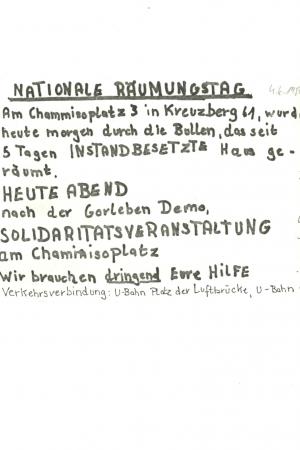 NATIONALE RÄUMUNGSTAG
Am Chamissoplatz 3 in Kreuzberg 61, wurd
heute morgen durch die Bullen, das seit
5 Tagen INSTANDBESETZTE Haus ge-
räumt.
HEUTE ABEND
nach der Gorleben Demo,
SOLIDARITATSVERANSTALTUNG
am Chamissoplatz
Wir brauchen dringend Eure HILFE
Verkehrsverbindung: U-Bahn Platz der Luftbrücke, U-Bahn